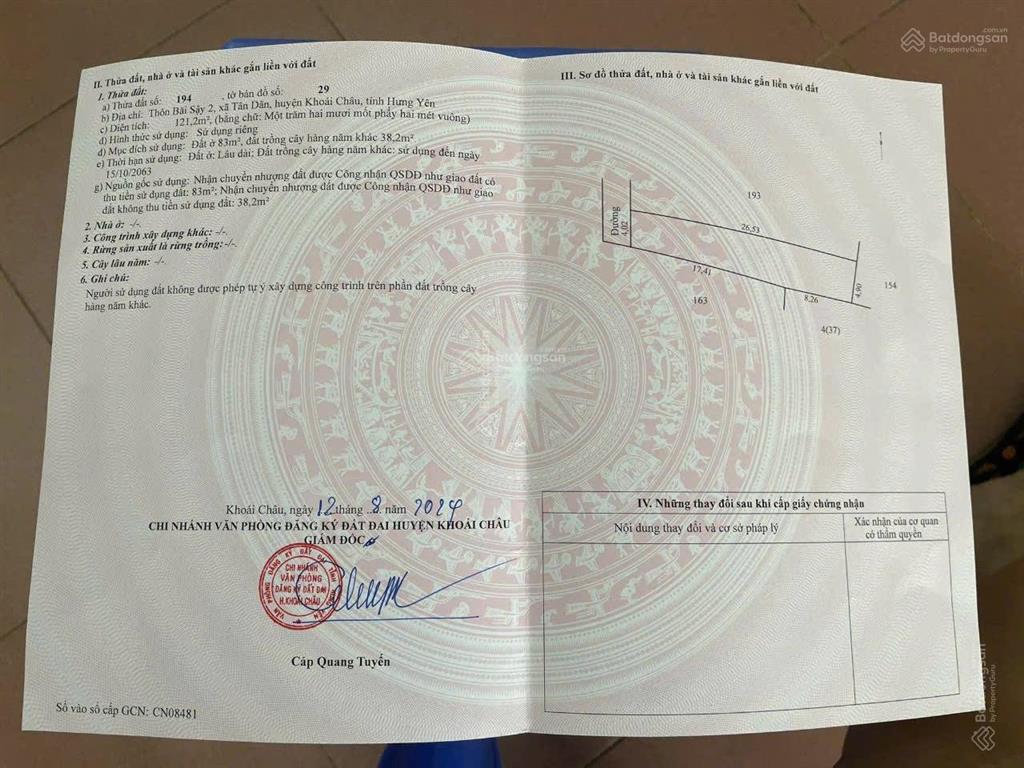 II. Thửa đất, nhà ở và tài sản khác gắn liền với đất
1. Thửa đất:
a) Thửa đất số: 194 , tờ bản đồ số: 29
b) Địa chỉ: Thôn Bãi Sậy 2, xã Tân Dân, huyện Khoái Châu, tỉnh Hưng Yên
c) Diện tích: 121,2m², (bằng chữ: Một trăm hai mươi mốt phẩy hai mét vuông)
d) Hình thức sử dụng: Sử dụng riêng
đ) Mục đích sử dụng: Đất ở 83m², đất trồng cây hàng năm khác 38,2m²
e) Thời hạn sử dụng: Đất ở: Lâu dài; Đất trồng cây hàng năm khác: sử dụng đến ngày
15/10/2063
g) Nguồn gốc sử dụng: Nhận chuyển nhượng đất được Công nhận QSDĐ như giao đất có
thu tiền sử dụng đất: 83m²; Nhận chuyển nhượng đất được Công nhận QSDĐ như giao
đất không thu tiền sử dụng đất: 38,2m²
2. Nhà ở: -/-
3. Công trình xây dựng khác: -/-.
4. Rừng sản xuất là rừng trồng: -/-.
5. Cây lâu năm: -/-
6. Ghi chú:
Người sử dụng đất không được phép tự ý xây dựng công trình trên phần đất trồng cây
hàng năm khác.
Khoái Châu, ngày 12 tháng 8 năm 2024
CHI NHÁNH VĂN PHÒNG ĐĂNG KÝ ĐẤT ĐAI HUYỆN KHOÁI CHÂU
GIÁM ĐỐC
CHI NHÁNH
VĂN PHÒNG
ĐĂNG KÝ ĐẤT ĐAI
H.KHOÁI CHÂU
Cáp Quang Tuyến
Số vào sổ cấp GCN: CN08481
III. Sơ đồ thửa đất, nhà ở và tài sản khác gắn liền với đất
193
Đường
4,02
26,53
17,41
163
8,26
4,90
154
4(37)
IV. Những thay đổi sau khi cấp giấy chứng nhận
Nội dung thay đổi và cơ sở pháp lý
Xác nhận của cơ quan
có thẩm quyền
Batdongsan.com.vn
by PropertyGuru
Batdongsan
Batdongsan
by PropertyGuru